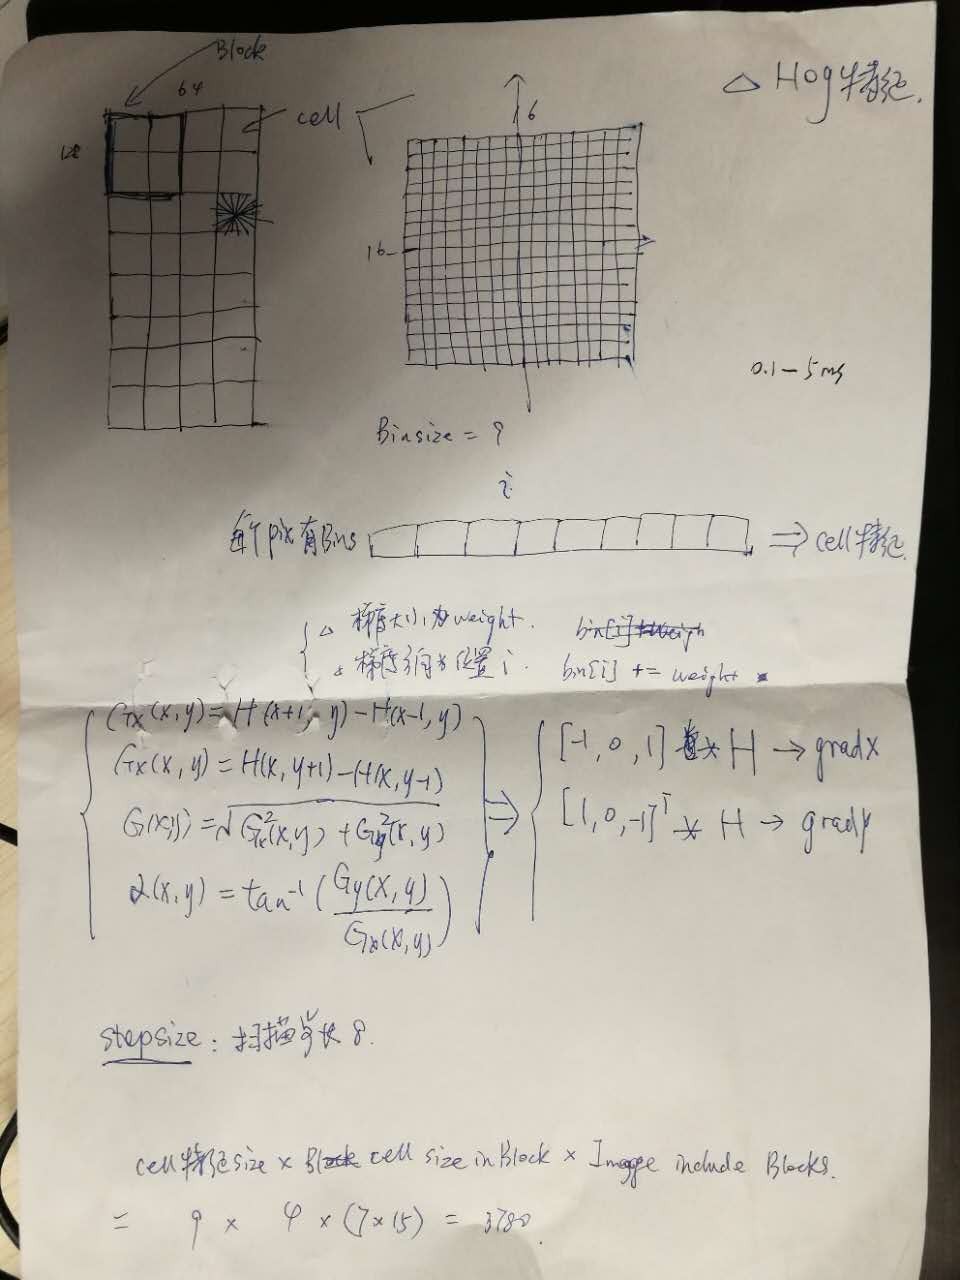 Block
△ Hog特征.
64
cell
16
128
16
0.1-5ms
Binsize = 9
i
每个pix有Bins ⇒ cell特征.
△ 梯度大小为weight.
bin[i] += weight
△ 梯度方向为位置i.
Gx(x,y)=H(x+1, y)-H(x-1,y)
Gx(x,y)=H(x,y+1)-H(x,y-1)
G(x,y)=√Gx²(x,y)+Gy²(x,y)
α(x,y)=tan⁻¹(Gy(x,y)/Gx(x,y))
⇒
[-1, 0, 1] * H → gradx
[1,0,-1]ᵀ * H → grady
stepsize: 扫描步长 8.
cell特征size × cell size in Block × Imagge include Blocks.
= 9 × 4 × (7×15) = 3780